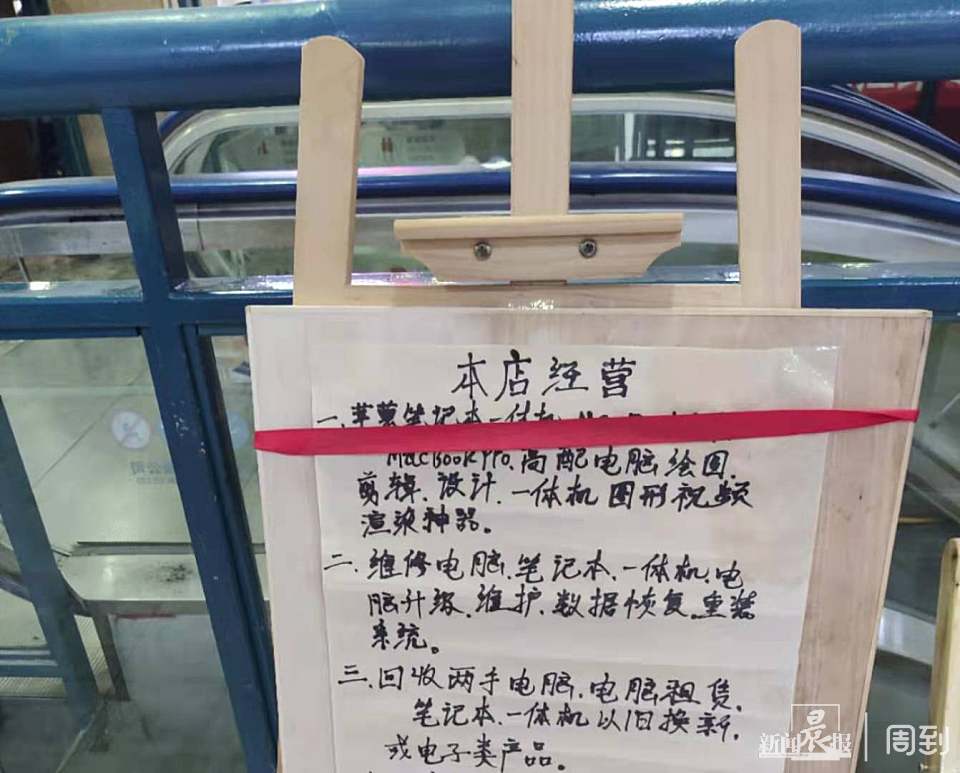 本店经营
一、苹果笔记本一体机
MacBook Pro、高配电脑绘图、
剪辑、设计、一体机图形视频
渲染神器。
二、维修电脑、笔记本、一体机、电
脑升级、维护、数据恢复、重装
系统。
三、回收两手电脑、电脑租赁、
笔记本、一体机以旧换新、
或电子类产品。
新闻晨报
周到